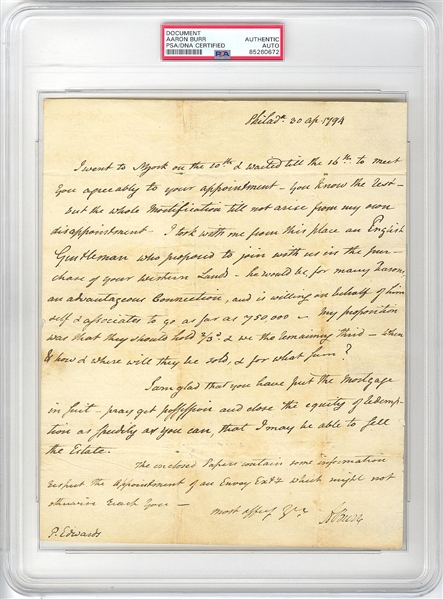 DOCUMENT
AARON BURR
PSA/DNA CERTIFIED
AUTHENTIC
AUTO
85260672
PSA
Philada 30 ap 1794
I went to NYork on the 10th & waited till the 16th to meet
you agreeably to your appointment – You know the rest –
but the whole Mortification did not arise from my own
disappointment – I took with me from this place an English
Gentleman who proposed to join with us in the pur-
chase of your western Lands – he would be, for many reasons,
an advantageous Connection, and is willing on behalf of him
self & associates to go as far as 750000 – My proposition
was that they should hold 2/3ds & we the remaining third – When
& how & where will they be sold, & for what sum?
I am glad that you have put the Mortgage
in suit – pray get possession and close the equity of redemp-
tion as speedily as you can, that I may be able to sell
the Estate.
The enclosed Papers contain some information
respt the Appointment of an Envoy Exty which might not
otherwise reach you –
most affecy Yrs
A Burr
P. Edwards